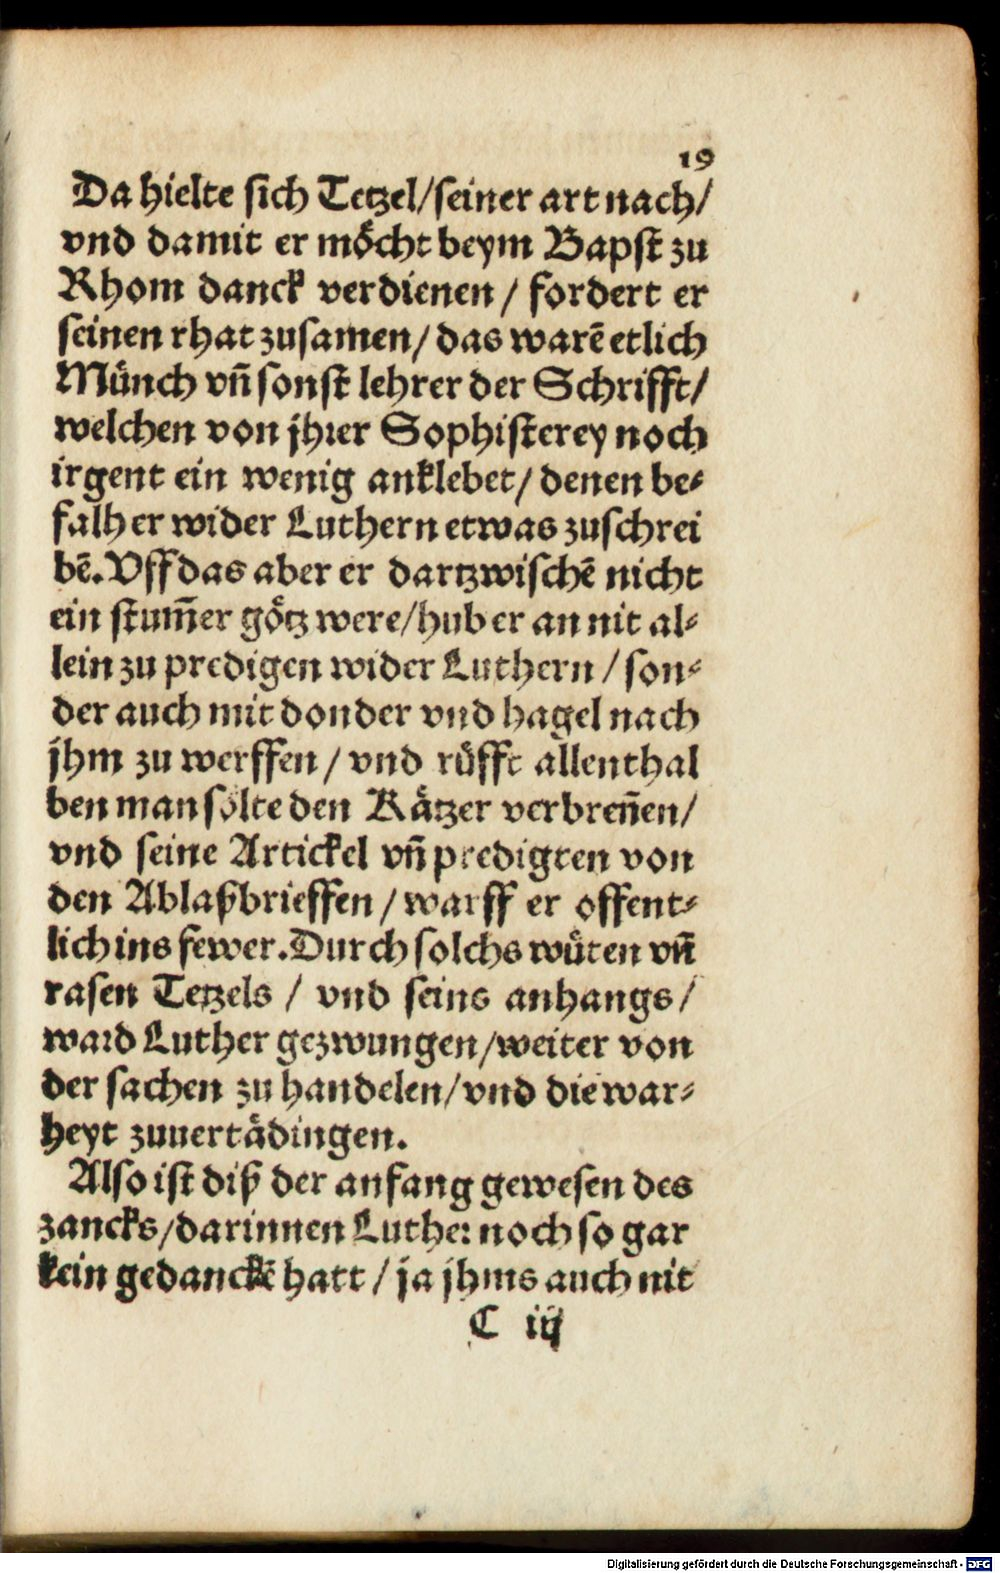 19
Da hielte sich Tetzel/seiner art nach/
vnd damit er möcht beym Bapst zu
Rhom danck verdienen / fordert er
seinen rhat zusamen/ das warẽ etlich
Münch vñ sonst lehrer der Schrifft/
welchen von jhrer Sophisterey noch
irgent ein wenig anklebet/ denen be⸗
falh er wider Luthern etwas zuschrei
bẽ. Vff das aber er dartzwischẽ nicht
ein stum̃er götz were/hub er an nit al⸗
lein zu predigen wider Luthern / son⸗
der auch mit donder vnd hagel nach
jhm zu werffen / vnd rüfft allenthal
ben man solte den Kätzer verbreñen/
vnd seine Artickel vñ predigten von
den Ablaßbrieffen / warff er offent⸗
lich ins fewer. Durch solchs wüten vñ
rasen Tetzels / vnd seins anhangs/
ward Luther gezwungen/weiter von
der sachen zu handelen/vnd die war⸗
heyt zuuertädingen.
Also ist diß der anfang gewesen des
zancks/darinnen Luther noch so gar
kein gedanckẽ hatt / ja jhms auch nit
C iij
Digitalisierung gefördert durch die Deutsche Forschungsgemeinschaft - DFG